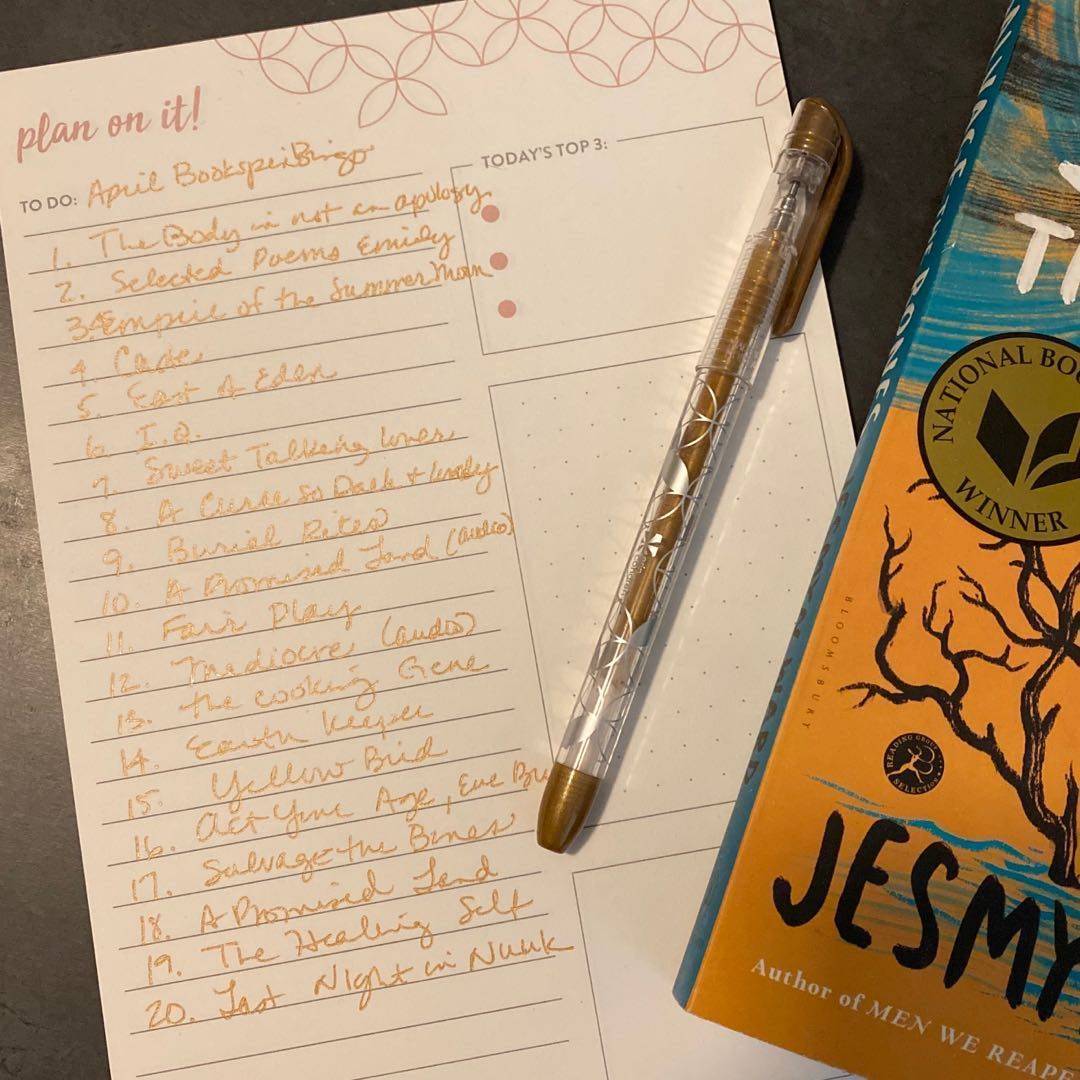 plan on it!
TO DO: April BookspinBingo
TODAY'S TOP 3:
1. The Body is not an apology
2. Selected Poems Emily
3. Empire of the Summer Moon
4. Caste
5. East of Eden
6. I.Q.
7. Sweet Talking Lover
8. A Curse So Dark + Lonely
9. Burial Rites
10. A Promised Land (audio)
11. Fair Play
12. Mediocre (audio)
13. the Cooking Gene
14. Earth Keeper
15. Yellow Bird
16. Act Your Age, Eve
17. Salvage the Bones
18. A Promised Land
19. The Healing Self
20. Last Night in Nuuk
SALVAGE THE BONES
JESMYN WARD
BLOOMSBURY
T
NATIONAL BOO
WINNER
READING GROUP
SELECTION
JESMY
Author of MEN WE REAPE